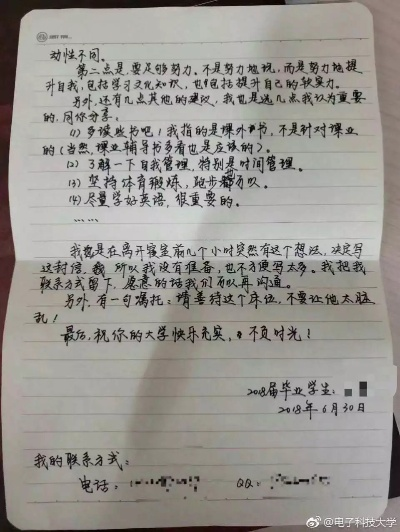 动性不同。
第二点是,要足够努力。不是努力地玩,而是努力地提
升自我,包括学习文化知识,也包括提升自己的软实力。
另外,还有几点其他的建议,我也是选几点我认为重要
的,同你分享:
(1)多读些书吧!我指的是课外书,不是针对课业
的(当然,课业辅导书多看也是应该的)。
(2)了解一下自我管理,特别是时间管理。
(3)坚持体育锻炼,跑步都可以。
(4)尽量学好英语,很重要的。
……
我也是在离开寝室前几个小时突然有这个想法,决定写
这封信,所以我没有准备,也不方便写太多。我把我
联系方式留下,愿意的话我们可以再沟通。
另外,有一句嘱托:请善待这个床位,不要让他太脏
乱!
最后,祝你的大学快乐充实,不负时光!
2018届毕业学生:
2018年6月30日
我的联系方式:
电话: QQ:
@电子科技大学